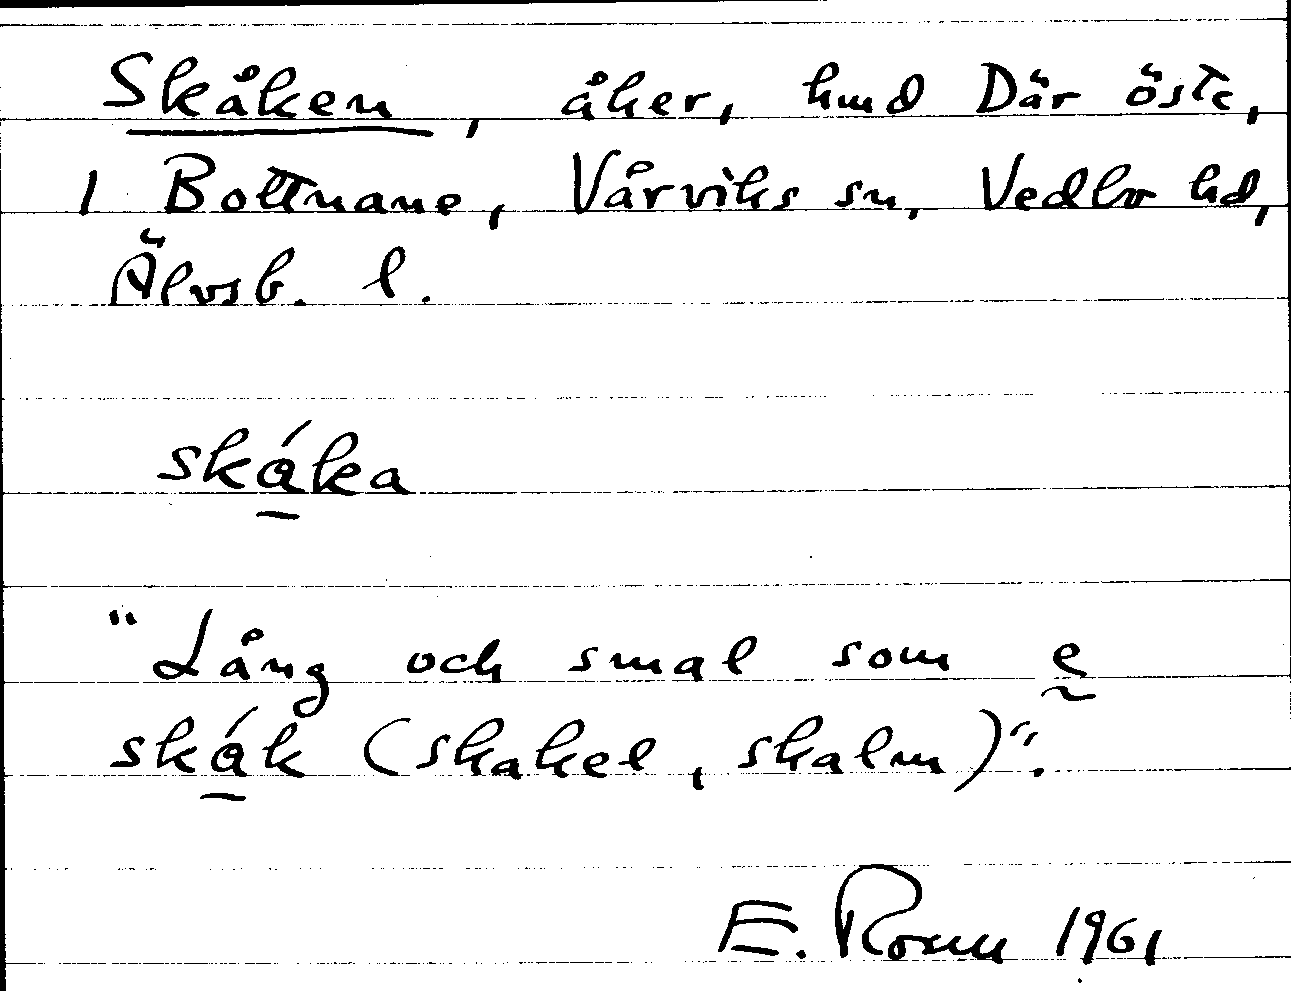 Skåken, åker, hmd Där öste,
1 Bottnane, Vårviks sn, Vedbo hd,
Älvsb. l.
skáka
"Lång och smal som e
skák (skakel, skalm)".
E. Rosen 1961